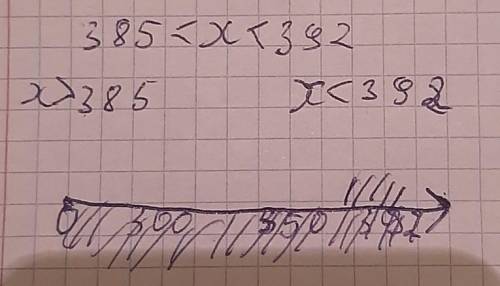 385 < x < 392
x > 385 x < 392
0 300 350 392